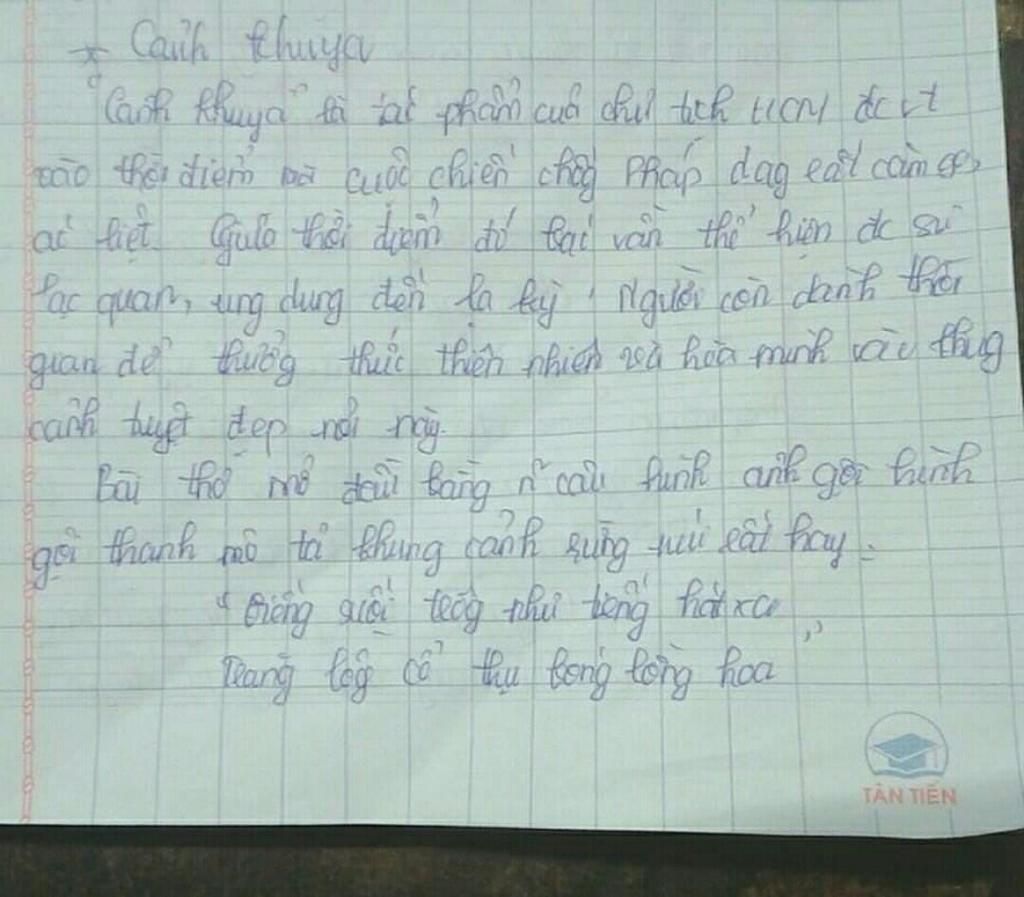 * Cảnh khuya
"Cảnh khuya" là tác phẩm của chủ tịch HCM đc vt
vào thời điểm mà cuộc chiến chốg Pháp đag rất cam go,
ác liệt. Giữa thời điểm đó Bác vẫn thể hiện đc sự
lạc quan, ung dung đến lạ kỳ. Người còn dành thời
gian để thưởg thức thiên nhiên và hòa mình vào khug
cảnh tuyệt đẹp nơi này.
Bài thơ mở đầu bằng n~ câu hình ảnh gợi hình
gợi thanh mô tả khung cảnh rừng núi rất hay:
"Tiếng suối trog như tiếng hát xa
Trăng lồg cổ thụ bóng lồng hoa"
TÂN TIẾN